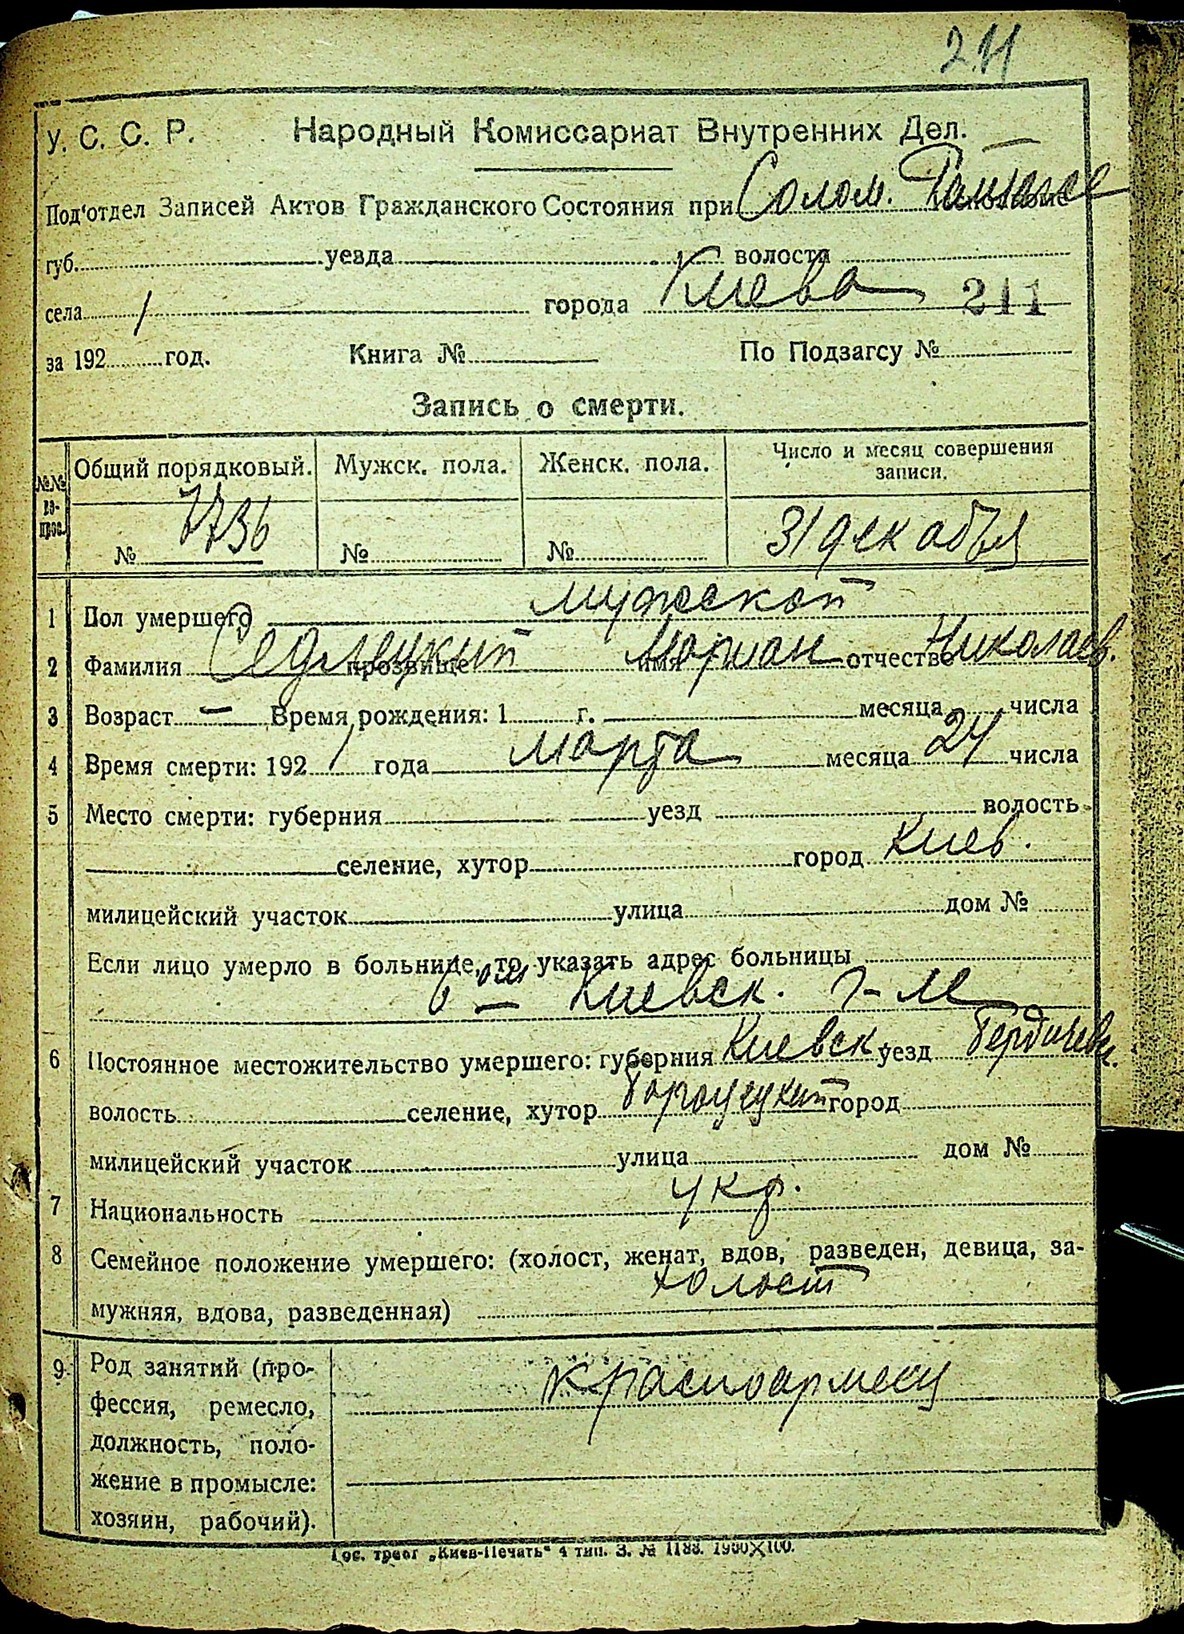 211
У. С. С. Р. Народный Комиссариат Внутренних Дел.
Под'отдел Записей Актов Гражданского Состояния при Солом.
губ. уезда волости
села города Киева 211
за 192 год. Книга № По Подзагсу №
Запись о смерти.
№№ во- прос. Общий порядковый. Мужск. пола. Женск. пола. Число и месяц совершения записи.
№ 7736 № № 31 декабря
1 Пол умершего мужской
2 Фамилия Седлецкий прозвище имя Мариан отчество Николаев.
3 Возраст — Время рождения: 1 г. месяца числа
4 Время смерти: 192 1 года марта месяца 24 числа
5 Место смерти: губерния уезд волость
селение, хутор город Киев.
милицейский участок улица дом №
Если лицо умерло в больнице, то указать адрес больницы
6ой Киевск. г-ль
6 Постоянное местожительство умершего: губерния Киевск. уезд Бердичевск.
волость селение, хутор город
милицейский участок улица дом №
7 Национальность укр.
8 Семейное положение умершего: (холост, женат, вдов, разведен, девица, за-
мужняя, вдова, разведенная) холост
9 Род занятий (про-
фессия, ремесло, красноармеец
должность, поло-
жение в промысле:
хозяин, рабочий).
Гос. трест „Киев-Печать“ 4 тип. З. № 1183. 1900X100.